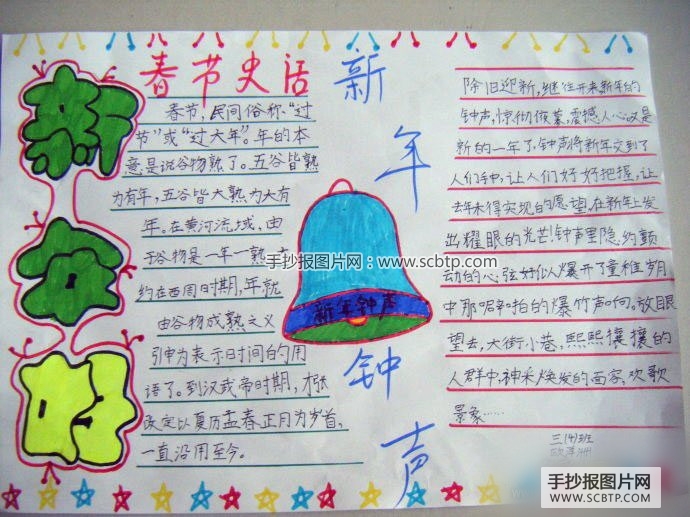 新
年
好
春节史话
春节,民间俗称“过
节”或“过大年”。年的本
意是说谷物熟了。五谷皆熟
为有年,五谷皆大熟为大有
年。在黄河流域,由
于谷物是一年一熟,
约在西周时期,年就
由谷物成熟之义
引申为表示时间的用
语了。到汉武帝时期,才
改定以夏历孟春正月为岁首,
一直沿用至今。
新年钟声
新年钟声
除旧迎新,继往开来,新年的
钟声,惊彻夜幕,震撼人心又是
新的一年了,钟声将新年交到了
人们手中,让人们好好把握,让
去年未得实现的愿望,在新年上发
出耀眼的光芒,钟声里隐约颤
动的心弦好似爆开了童稚岁月
中那噼拍的爆竹声响。放眼
望去,大街小巷,熙熙攘攘的
人群中,神采焕发的面容,欢歌
景象……
三(4)班
手抄报图片网:www.scbtp.com
手抄报图片网
WWW.SCBTP.COM